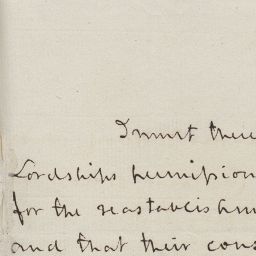 I must there
Lordships permission
for the reastablishm
and that their cons